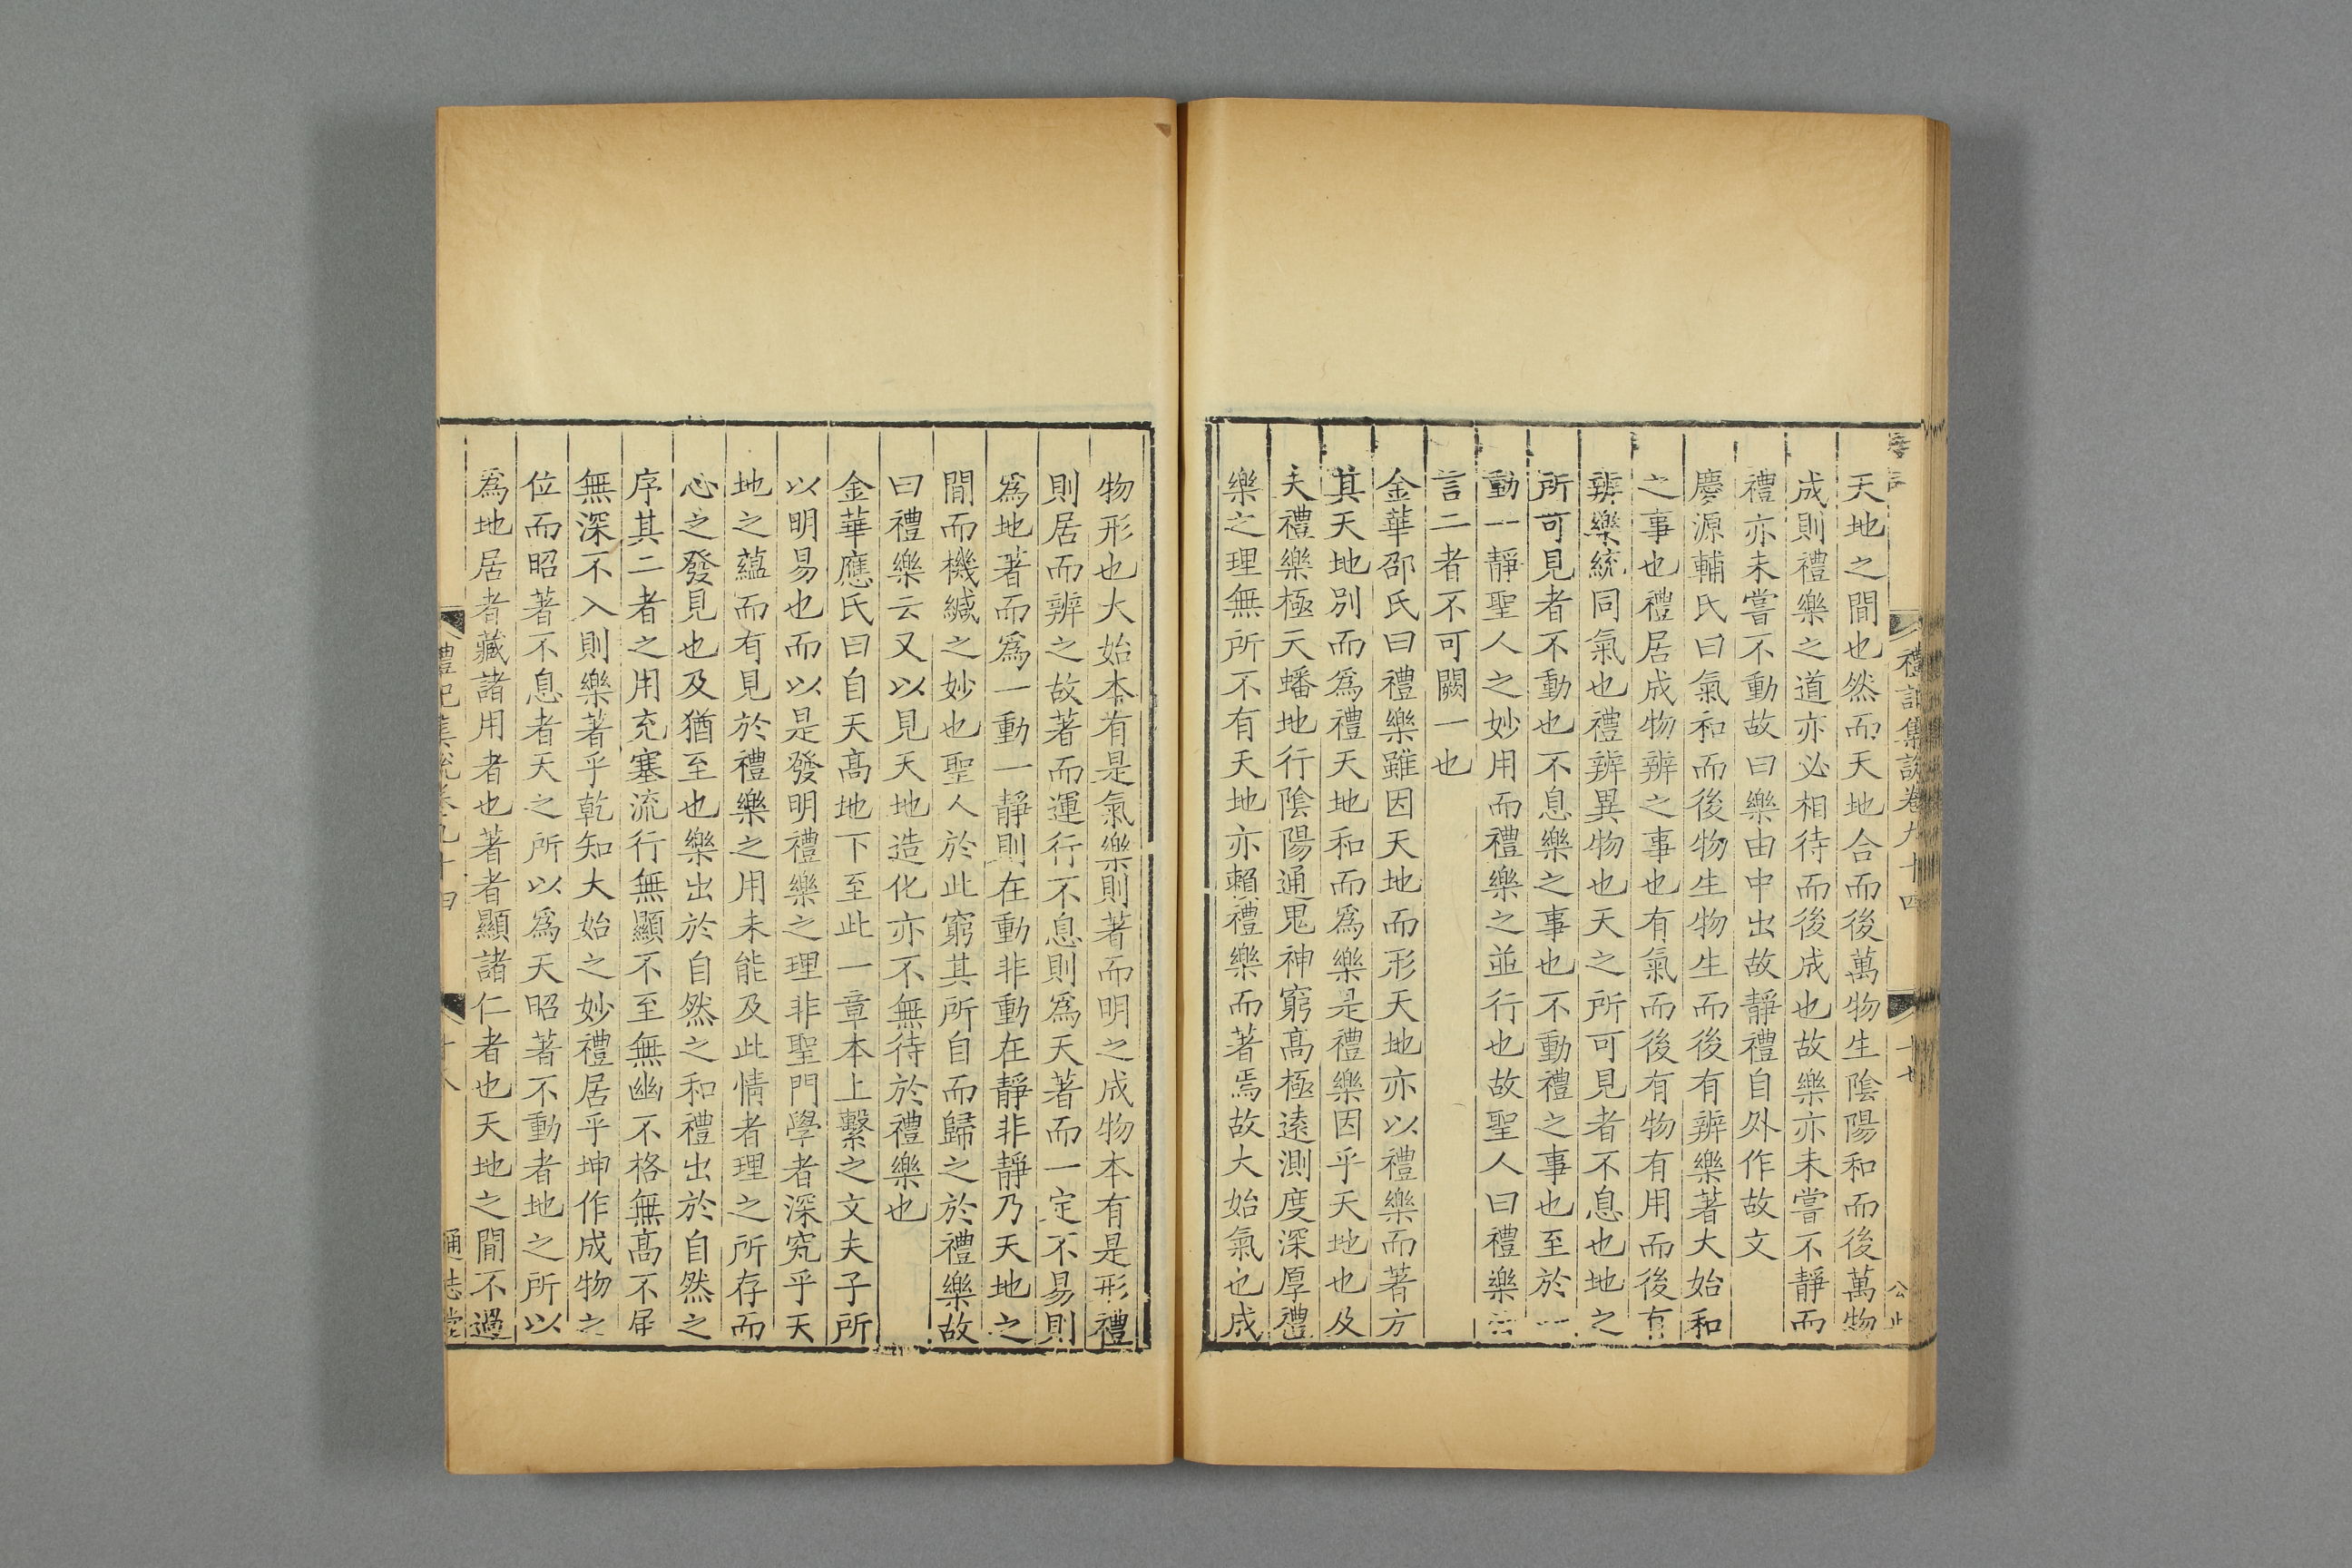 禮記集說卷九十四
十七
天地之間也然而天地合而後萬物生陰陽和而後萬物
成則禮樂之道亦必相待而後成也故樂亦未嘗不靜而
禮亦未嘗不動故曰樂由中出故靜禮自外作故文
慶源輔氏曰氣和而後物生物生而後有辨樂著大始和
之事也禮居成物辨之事也有氣而後有物有用而後有
辨樂統同氣也禮辨異物也天之所可見者不息也地之
所可見者不動也不息樂之事也不動禮之事也至於一
動一靜聖人之妙用而禮樂之並行也故聖人曰禮樂云
言二者不可闕一也
金華邵氏曰禮樂雖因天地而形天地亦以禮樂而著方
其天地別而爲禮天地和而爲樂是禮樂因乎天地也及
夫禮樂極天蟠地行陰陽通鬼神窮髙極遠測度深厚禮
樂之理無所不有天地亦賴禮樂而著焉故大始氣也成
物形也大始本有是氣樂則著而明之成物本有是形禮
則居而辨之故著而運行不息則爲天著而一定不易則
爲地著而爲一動一靜則在動非動在靜非靜乃天地之
間而機緘之妙也聖人於此窮其所自而歸之於禮樂故
曰禮樂云又以見天地造化亦不無待於禮樂也
金華應氏曰自天髙地下至此一章本上繫之文夫子所
以明易也而以是發明禮樂之理非聖門學者深究乎天
地之蘊而有見於禮樂之用未能及此情者理之所存而
心之發見也及猶至也樂出於自然之和禮出於自然之
序其二者之用充塞流行無顯不至無幽不格無髙不屆
無深不入則樂著乎乾知大始之妙禮居乎坤作成物之
位而昭著不息者天之所以爲天昭著不動者地之所以
爲地居者藏諸用者也著者顯諸仁者也天地之間不過
禮記集說卷九十四
十八
通志堂